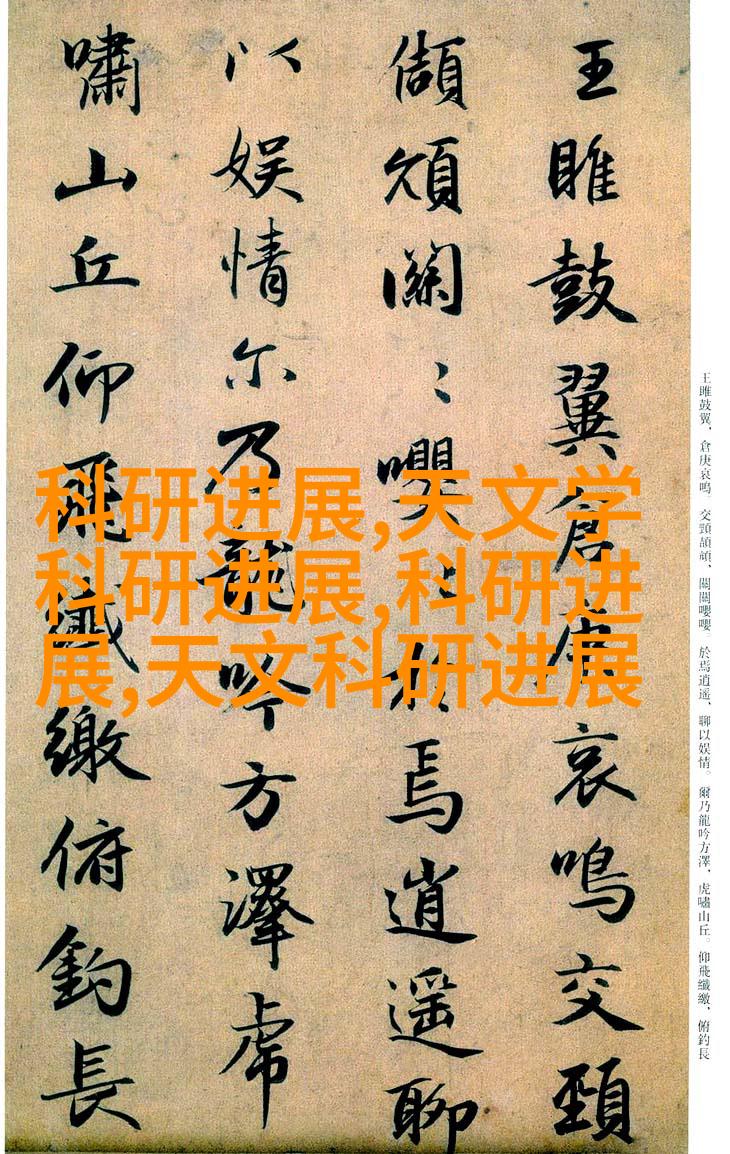 王雎鼓翼倉庚哀鳴交頸
頡頏關〻嚶〻於焉逍遥聊
以娱情尔乃龍吟方澤虎
嘯山丘仰飛纖繳俯釣長
科研进展,天文学
科研进展,科研进
展,天文科研进展
王雎鼓翼，倉庚哀鳴。交頸頡頏，關關嚶嚶。於焉逍遥，聊以娱情。爾乃龍吟方澤，虎嘯山丘。仰飛纖繳，俯釣長